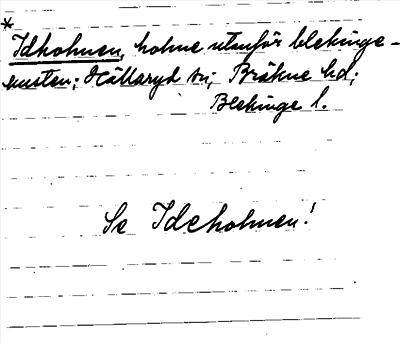 *
Idholmen, holme utanför blekinge-
kusten; Hällaryd sn; Bräkne hd;
Blekinge l.
Se Ideholmen!